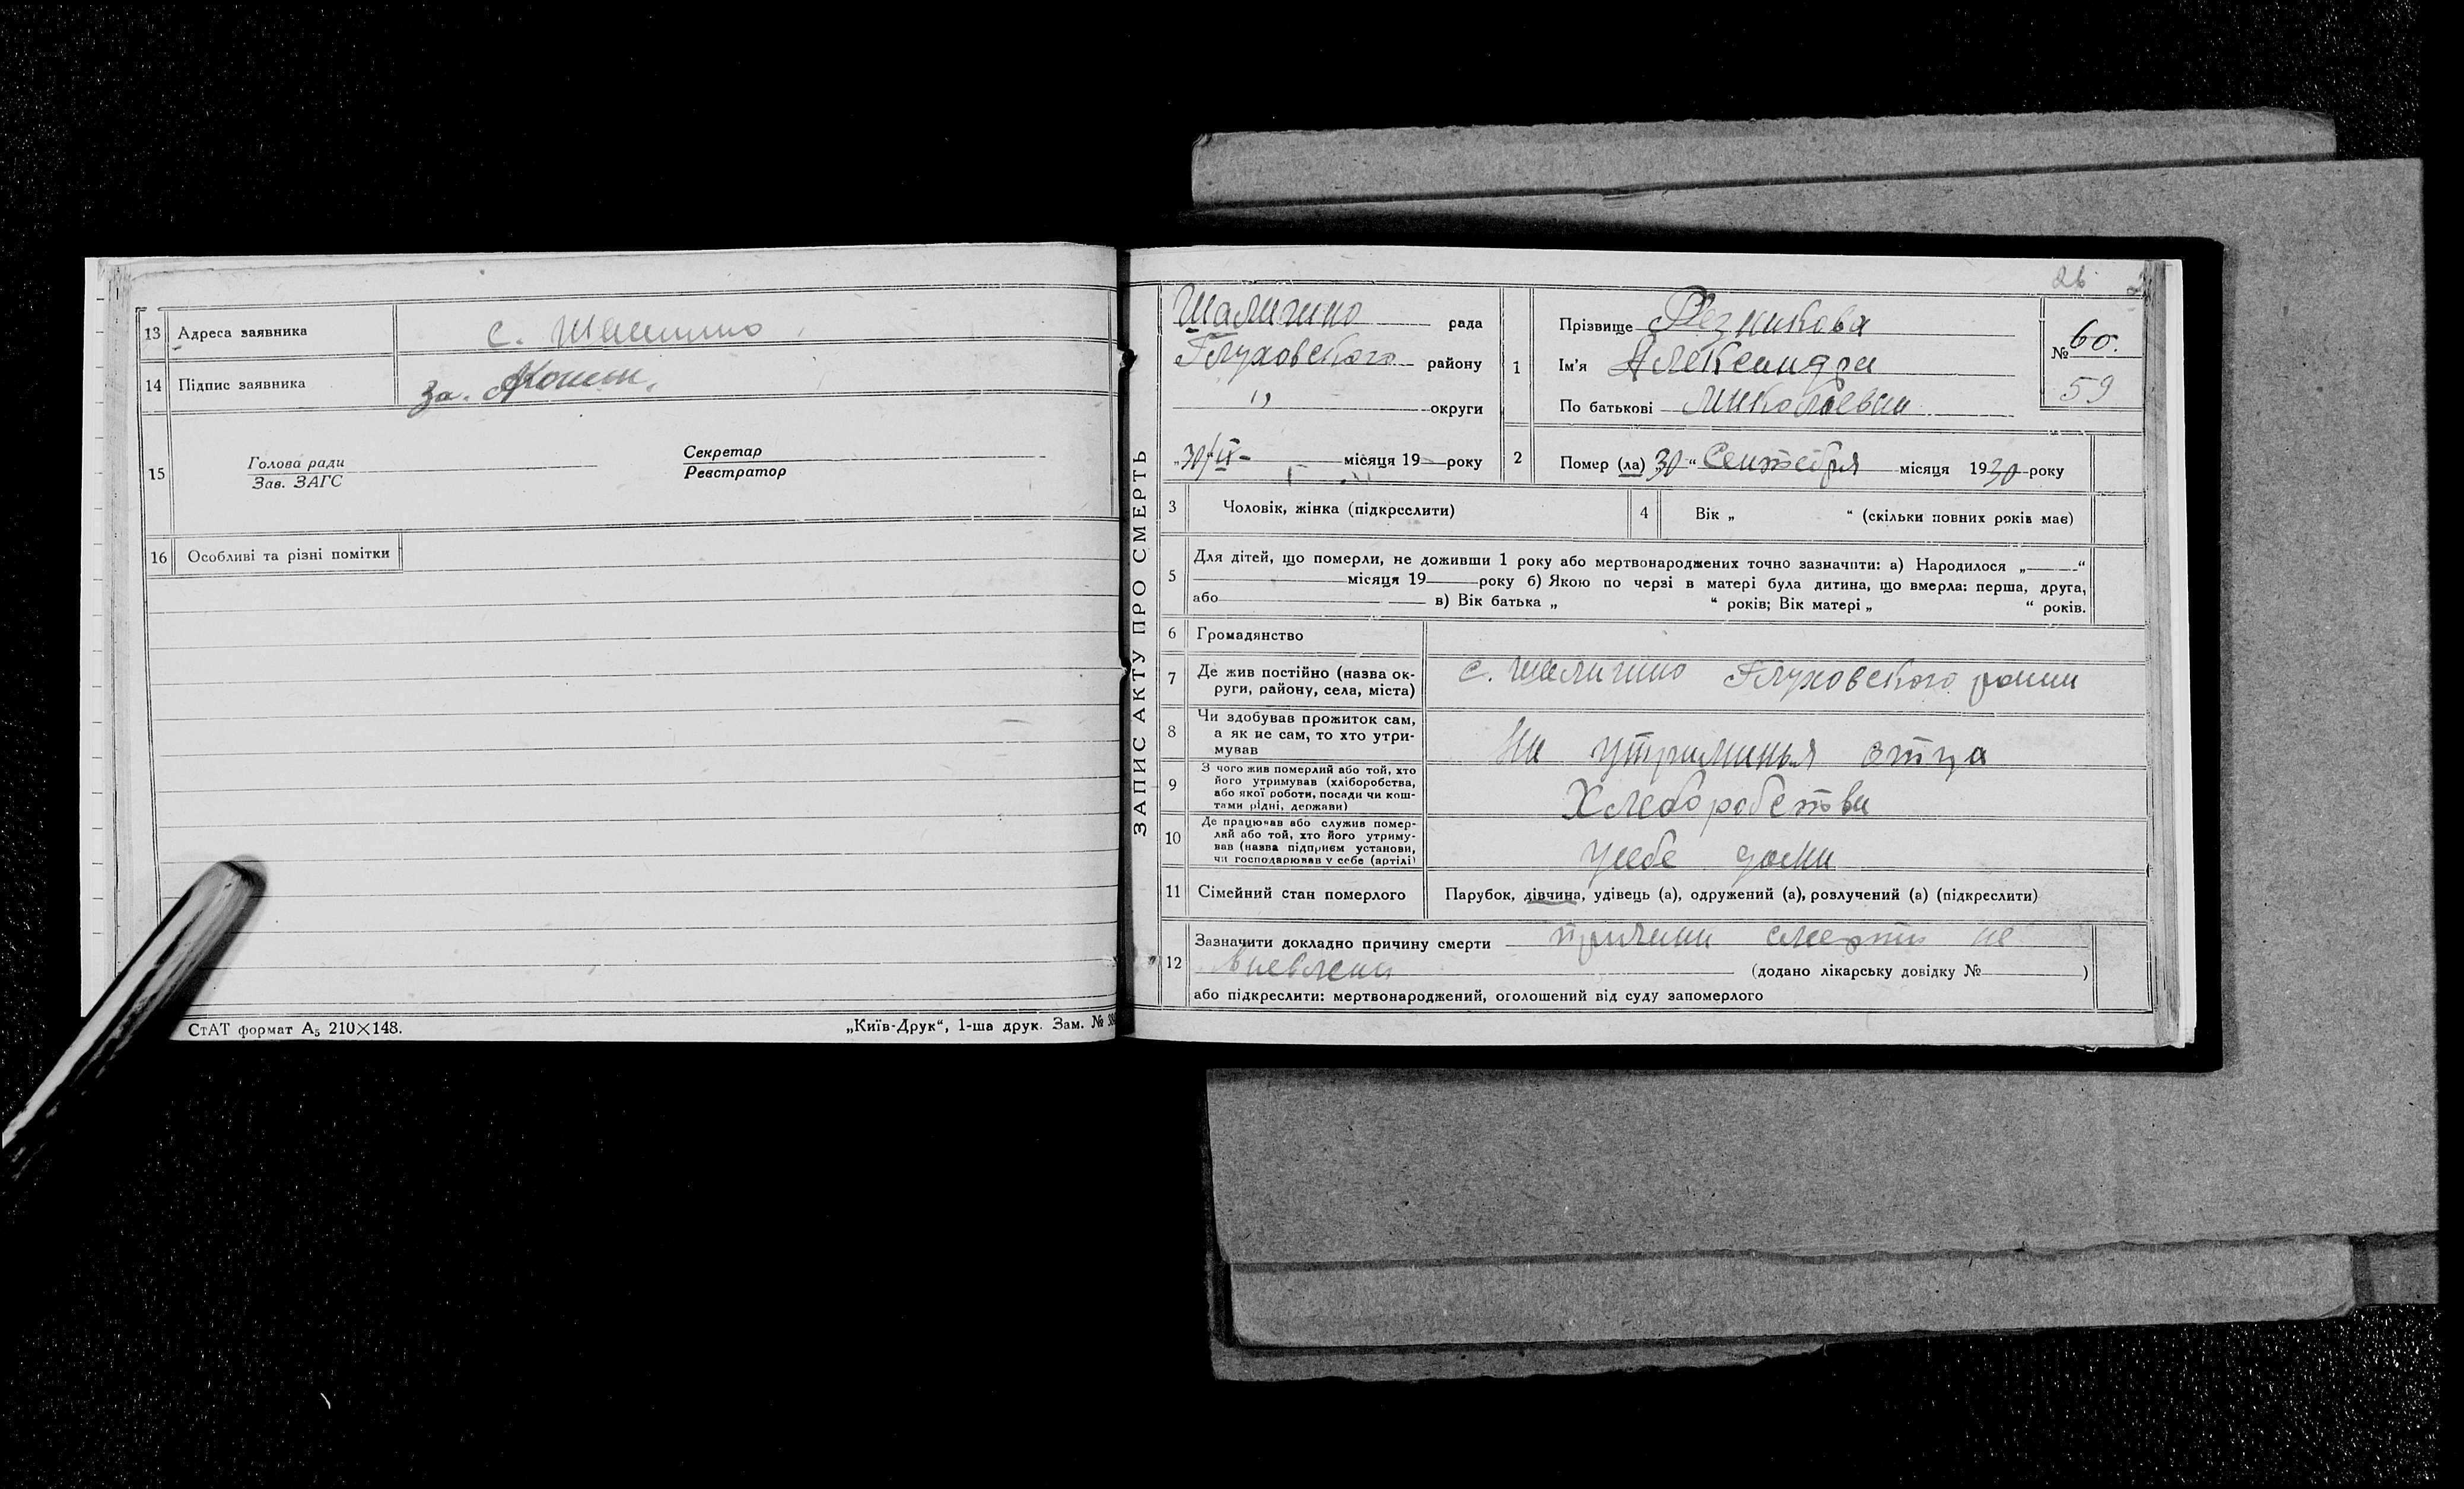 13 Адреса заявника с. Шалигино
14 Підпис заявника За.
15 Голова ради Секретар
Зав. ЗАГС Реєстратор
16 Особливі та різні помітки
СтАТ формат А5 210×148. „Київ-Друк“, 1-ша друк. Зам. №
ЗАПИС АКТУ ПРО СМЕРТЬ
26
Шалигино рада
Глуховского району
" округи
„30/IX- місяця 19 року
1 Прізвище Резникова
Ім'я Александра
По батькові Миколаевна
№ 60.
59
2 Помер (ла) 30 “ Сентебря місяця 1930 року
3 Чоловік, жінка (підкреслити) 4 Вік „ “ (скільки повних років має)
5 Для дітей, що померли, не доживши 1 року або мертвонароджених точно зазначити: а) Народилося „ “
місяця 19 року б) Якою по черзі в матері була дитина, що вмерла: перша, друга,
або в) Вік батька „ “ років; Вік матері „ “ років.
6 Громадянство
7 Де жив постійно (назва ок-
руги, району, села, міста) с. Шалигино Глуховского
8 Чи здобував прожиток сам,
а як не сам, то хто утри-
мував На утриманья отца
9 З чого жив померлий або той, хто
його утримував (хліборобства,
або якої роботи, посади чи кош-
тами рідні, держави) Хлеборобства
10 Де працював або служив помер-
лий або той, хто його утриму-
вав (назва підприєм установи,
чи господарював у себе (артілі) усебе дома
11 Сімейний стан померлого Парубок, дівчина, удівець (а), одружений (а), розлучений (а) (підкреслити)
12 Зазначити докладно причину смерти причина смерти не
виевлена (додано лікарську довідку № )
або підкреслити: мертвонароджений, оголошений від суду запомерлого